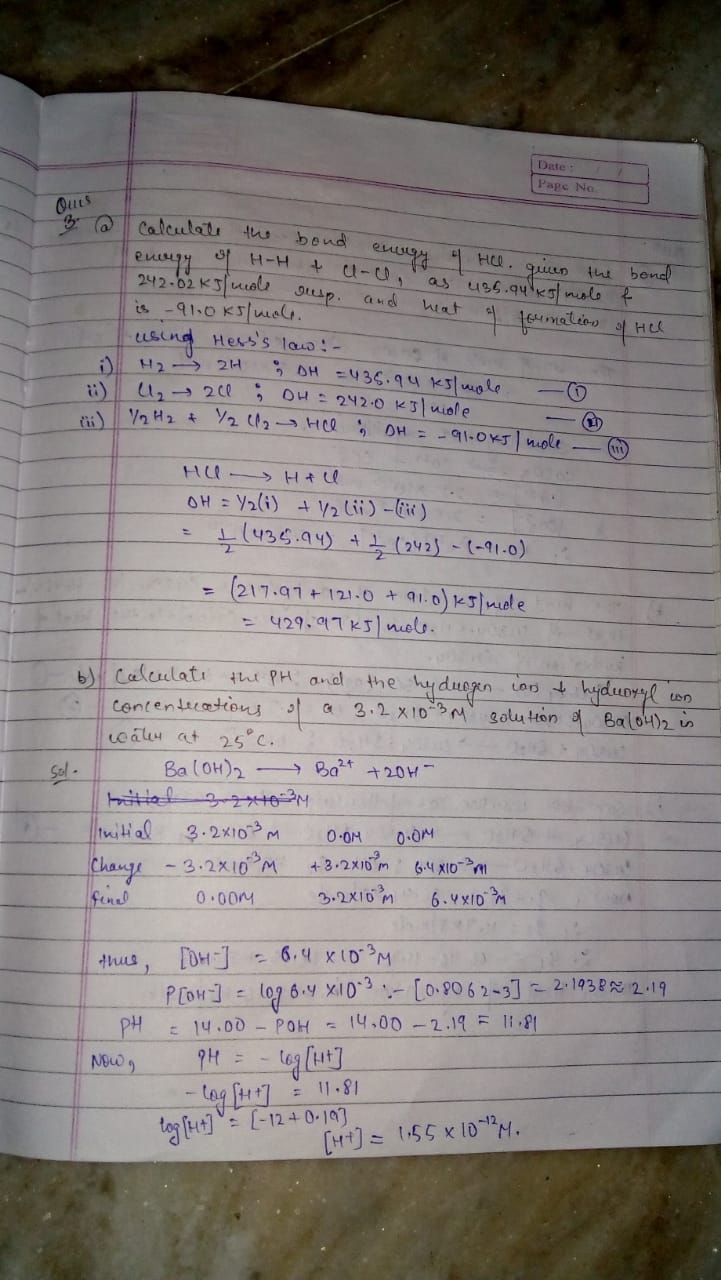 Date :
Page No.
Ques
3. (a) Calculate the bond energy of HCl. given the bond
energy of H-H + Cl-Cl, as 435.94 KJ/mole &
242.02 KJ/mole resp. and heat of formation of HCl
is -91.0 KJ/mole.
using Hess's law:-
i) H2 → 2H ; DH = 435.94 KJ/mole —(i)
ii) Cl2 → 2Cl ; DH = 242.0 KJ/mole —(ii)
iii) 1/2 H2 + 1/2 Cl2 → HCl ; DH = -91.0 KJ/mole —(iii)
HCl → H+Cl
DH = 1/2(i) + 1/2(ii) - (iii)
= 1/2 (435.94) + 1/2 (242) - (-91.0)
= (217.97 + 121.0 + 91.0) KJ/mole
= 429.97 KJ/mole.
b) Calculate the PH and the hydrogen ion + hydroxyl ion
concentrations of a 3.2 x 10⁻³M solution of Ba(OH)2 in
water at 25°C.
Sol. Ba(OH)2 → Ba²⁺ + 2OH⁻
Initial 3.2x10⁻³M
Initial 3.2x10⁻³ M 0.0M 0.0M
Change - 3.2x10⁻³M +3.2x10⁻³m 6.4x10⁻³m
final 0.00M 3.2x10⁻³M 6.4x10⁻³M
thus, [OH⁻] = 6.4 x10⁻³M
P[OH⁻] = log 6.4 x10⁻³ :- [0.8062-3] = 2.1938 ≈ 2.19
PH = 14.00 - POH = 14.00 - 2.19 = 11.81
Now, PH = - log[H+]
- log[H+] = 11.81
log[H+] = [-12+0.19]
[H+] = 1.55 x 10⁻¹²M.